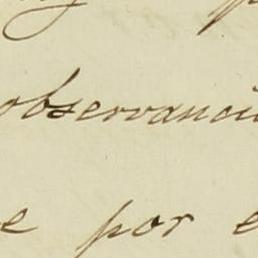 observanci
e por e